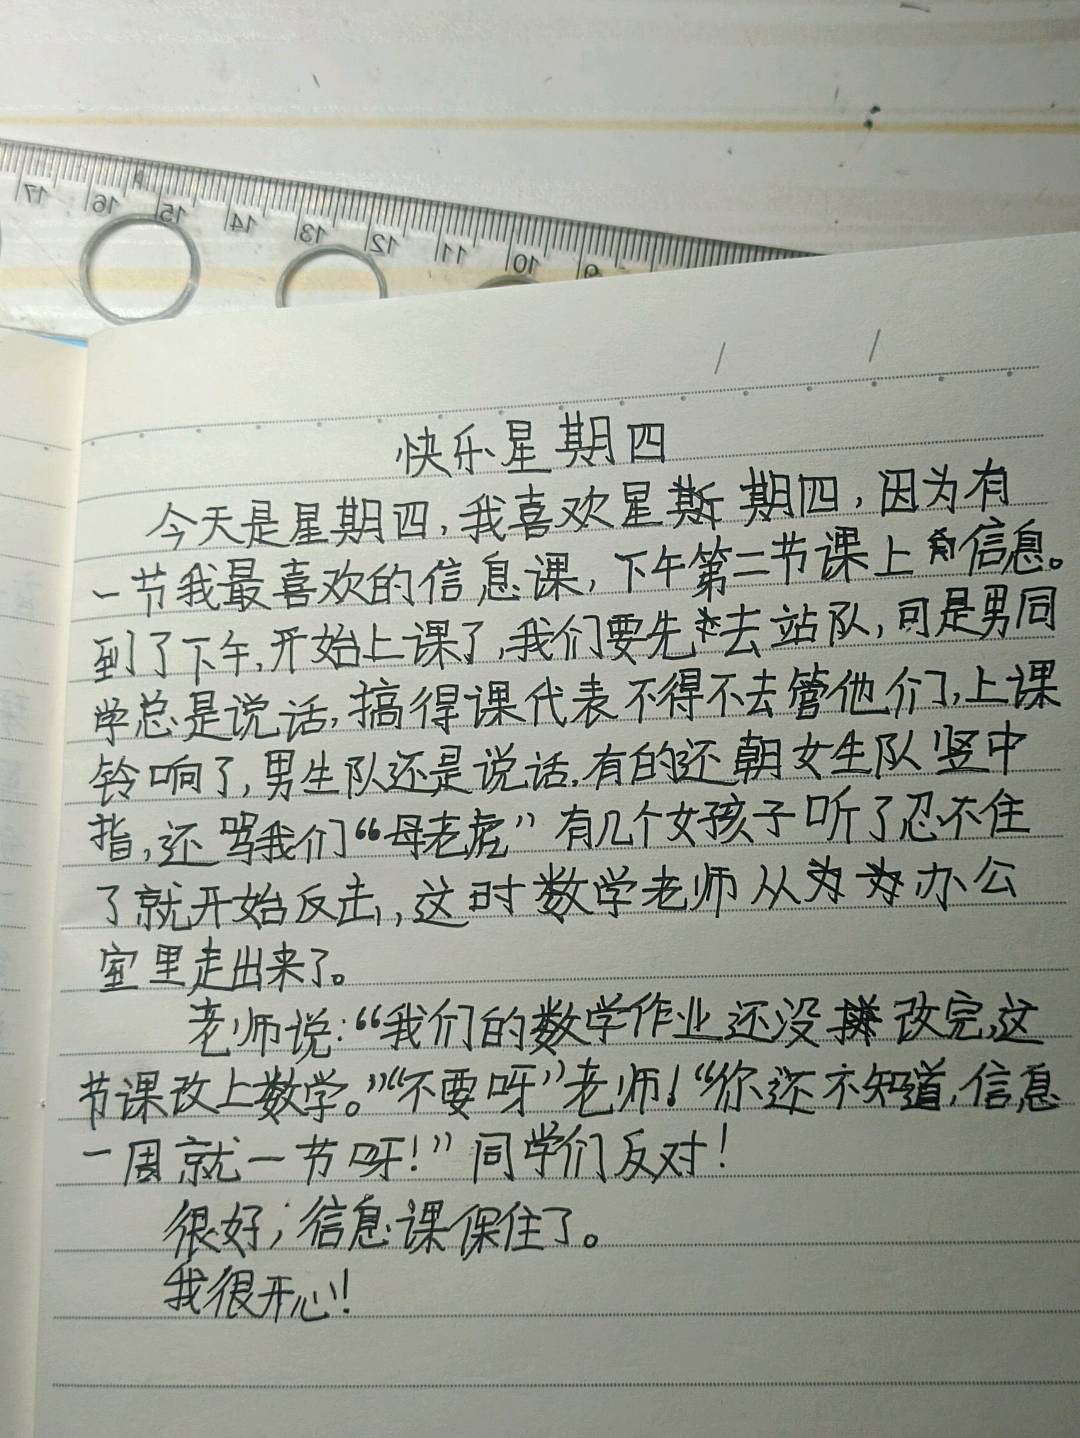 17 16 15 14 13 12 11 10 9
快乐星期四
今天是星期四,我喜欢星期四,因为有
一节我最喜欢的信息课,下午第二节课上信息。
到了下午,开始上课了,我们要先去站队,可是男同
学总是说话,搞得课代表不得不去管他们,上课
铃响了,男生队还是说话,有的还朝女生队竖中
指,还骂我们“母老虎”有几个女孩子听了忍不住
了就开始反击,,这时数学老师从办公
室里走出来了。
老师说:“我们的数学作业还没改完,这
节课改上数学。”“不要呀”老师!“你还不知道,信息
一周就一节呀!”同学们反对!
很好;信息课保住了。
我很开心!